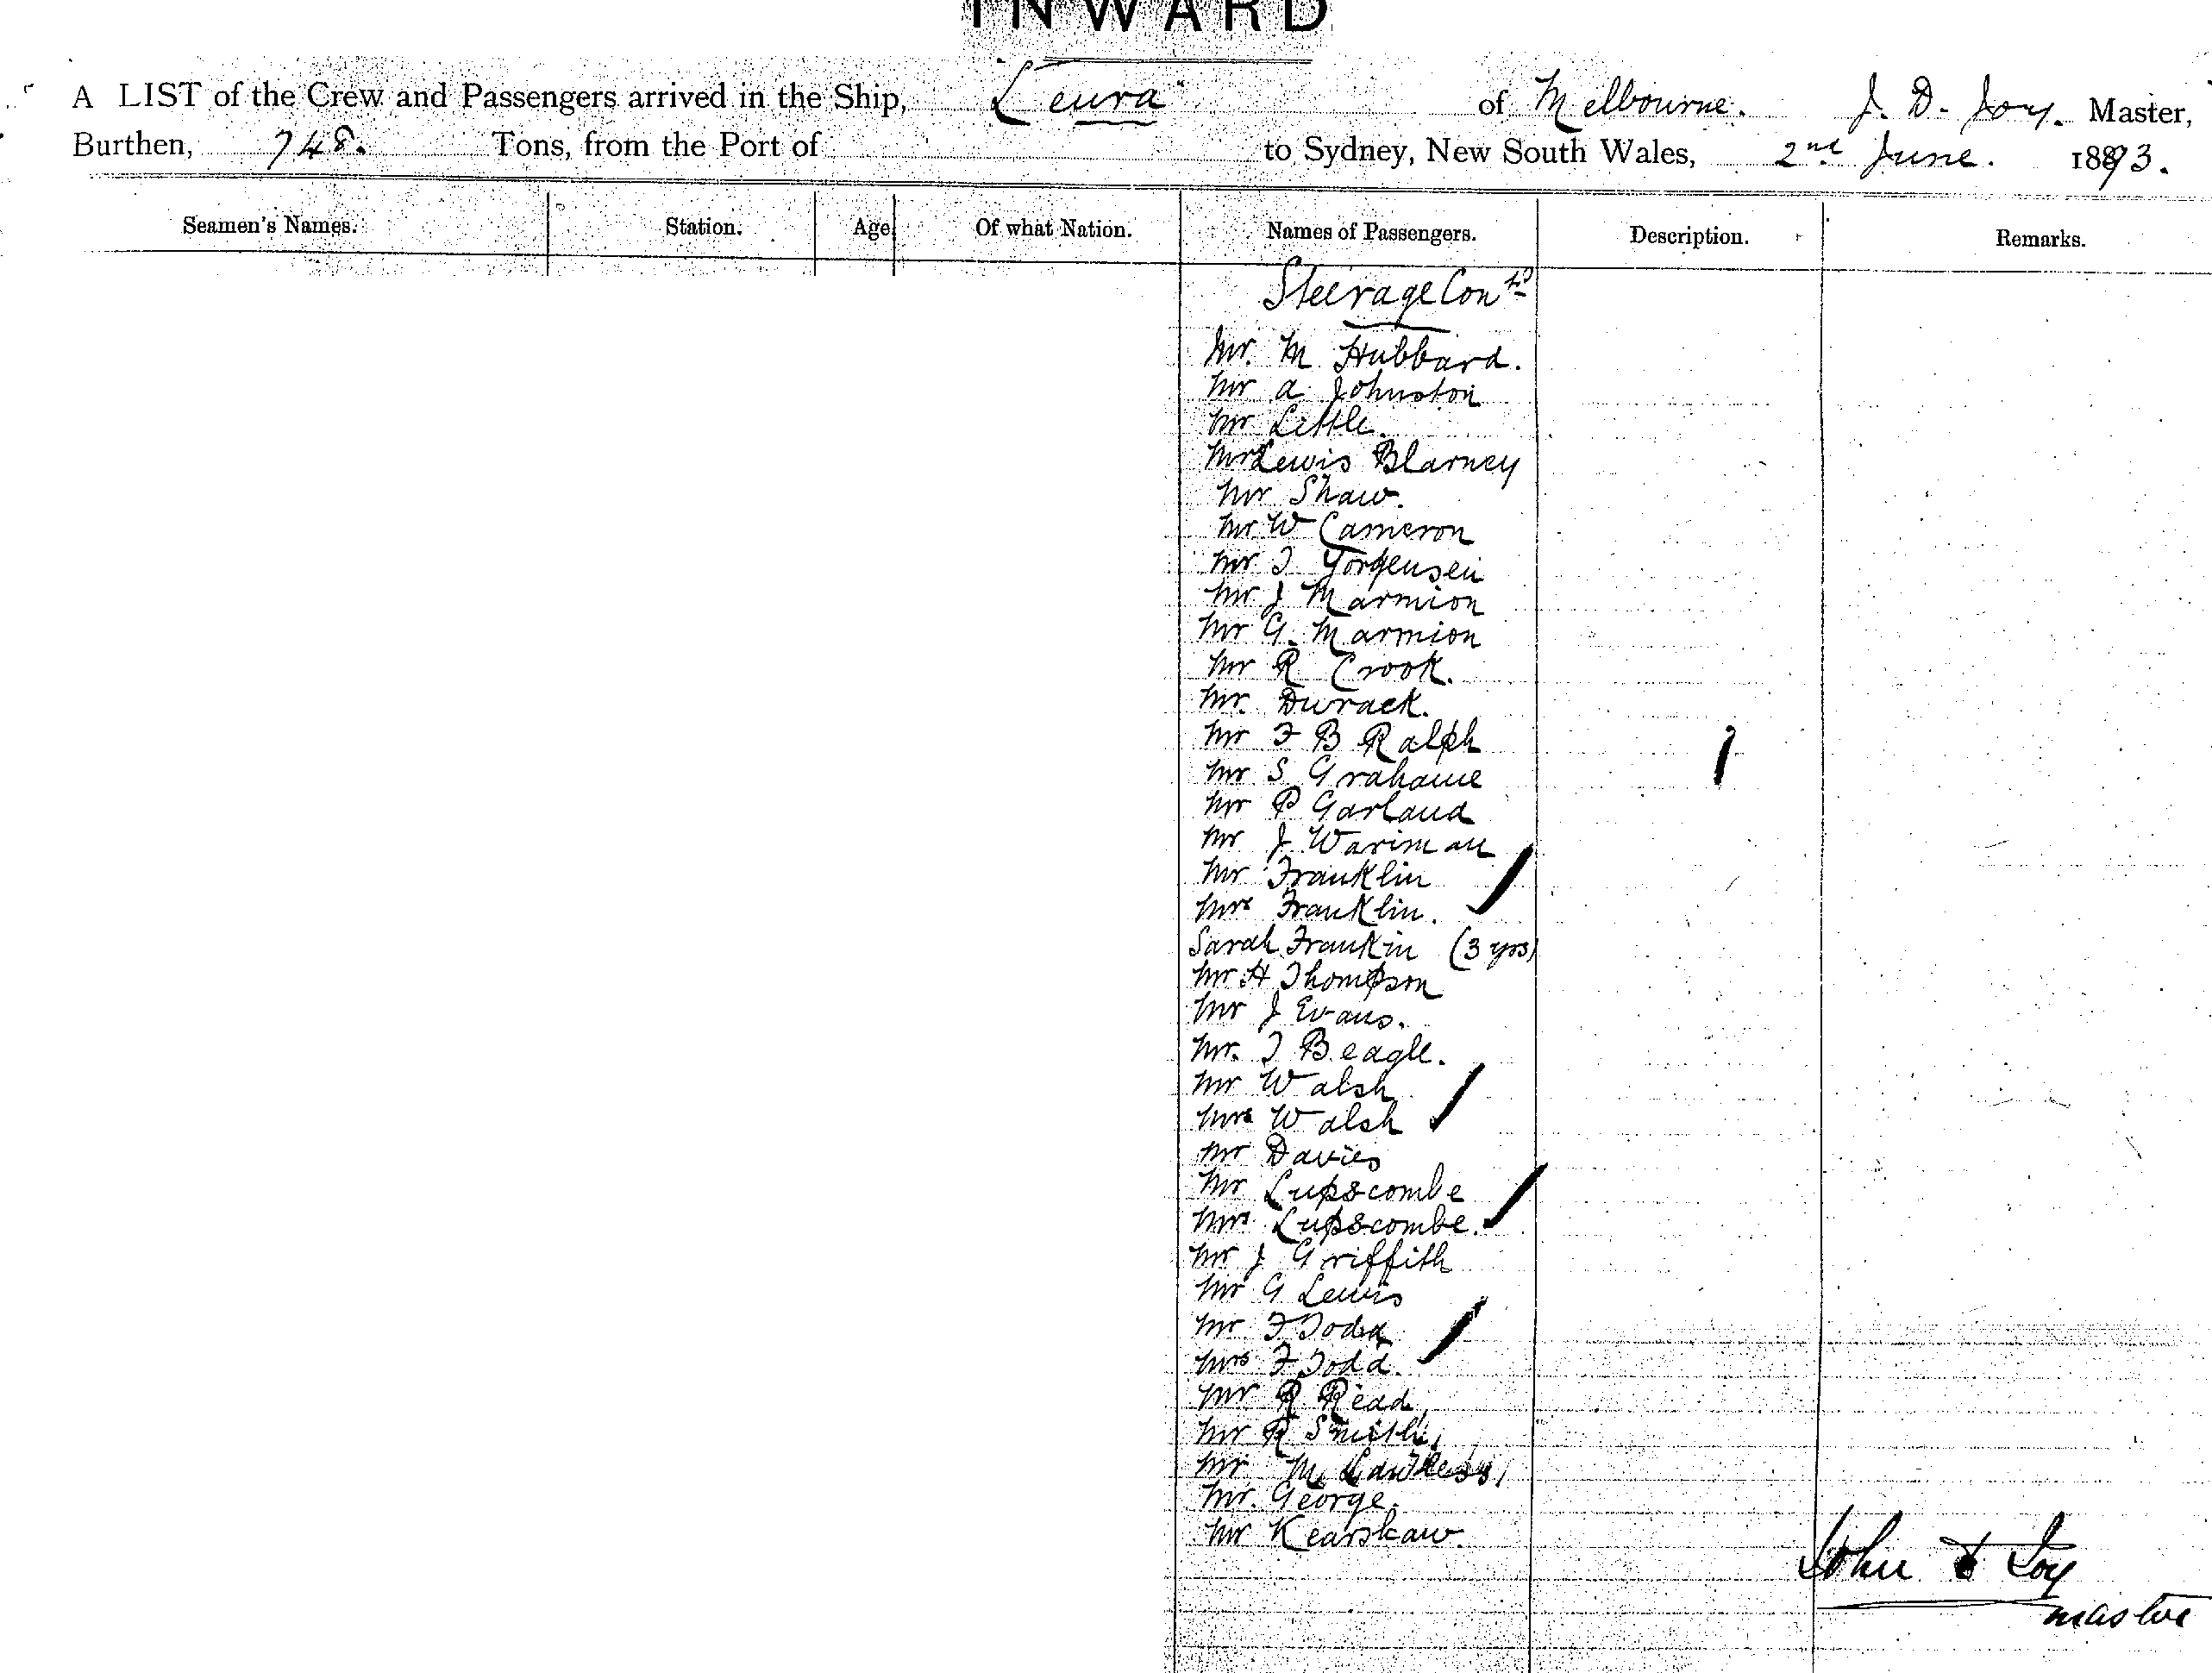 INWARD
A LIST of the Crew and Passengers arrived in the Ship, "Leura" of Melbourne. J. D. Joy. Master,
Burthen, 748. Tons, from the Port of to Sydney, New South Wales, 2nd June. 1893.
Seamen's Names. Station. Age Of what Nation. Names of Passengers. Description. Remarks.
Steerage Contd
Mr. M Hubbard.
Mr A Johnston
Mr Little.
Mr Lewis Blarney
Mr Shaw.
Mr W Cameron
Mr T Yorgensen
Mr J Marmion
Mr G. Marmion
Mr R Crook.
Mr. Durack.
Mr F B Ralph
Mr S Grahame
Mr P Garland
Mr J Wariman
Mr Franklin
Mrs Franklin.
Sarah Frankin (3 yrs)
Mr H Thompson
Mr J Evans.
Mr. T Beagle.
Mr Walsh
Mrs Walsh
Mr Davies
Mr Lupscombe
Mrs Lupscombe.
Mr J Griffith
Mr G Lewis
Mr F Todd
Mrs F Todd.
Mr R Read
Mr R Smith
Mr M Lawless
Mr. George.
Mr Kearshaw.
John D Joy
master